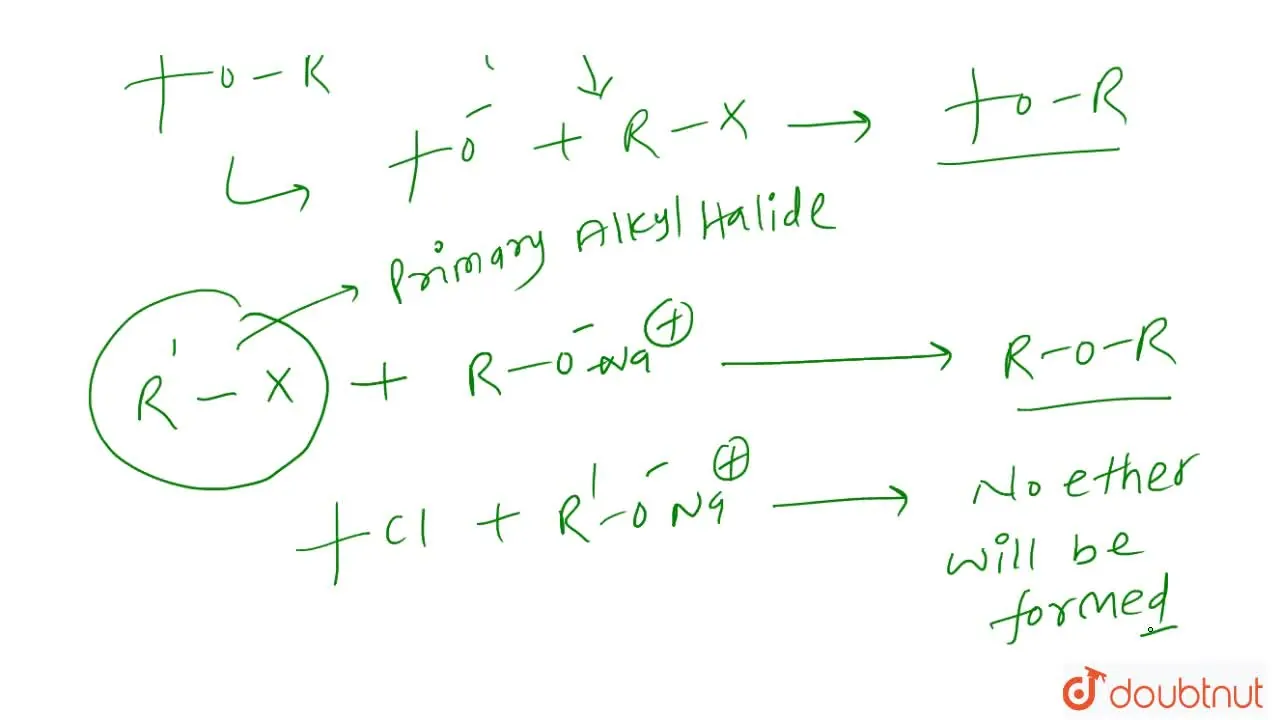 o – R
o⁻ + R – X → o – R
Primary Alkyl Halide
R' – X + R – o⁻ Na⊕ → R – o – R
Cl + R' – o⁻ Na⊕ → No ether
will be
formed
doubtnut